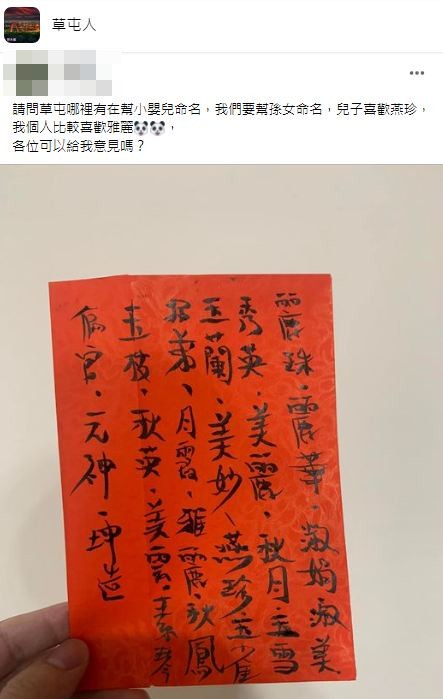 草屯人
請問草屯哪裡有在幫小嬰兒命名，我們要幫孫女命名，兒子喜歡燕珍，
我個人比較喜歡雅麗🐼🐼，
各位可以給我意見嗎？
麗珠、麗華、淑娟淑美
秀英、美麗、秋月、玉雪
玉蘭、美妙、燕珍
招弟、月霞、雅麗、秋鳳
玉枝、秋英、美雲、
偏官、元神、坤造